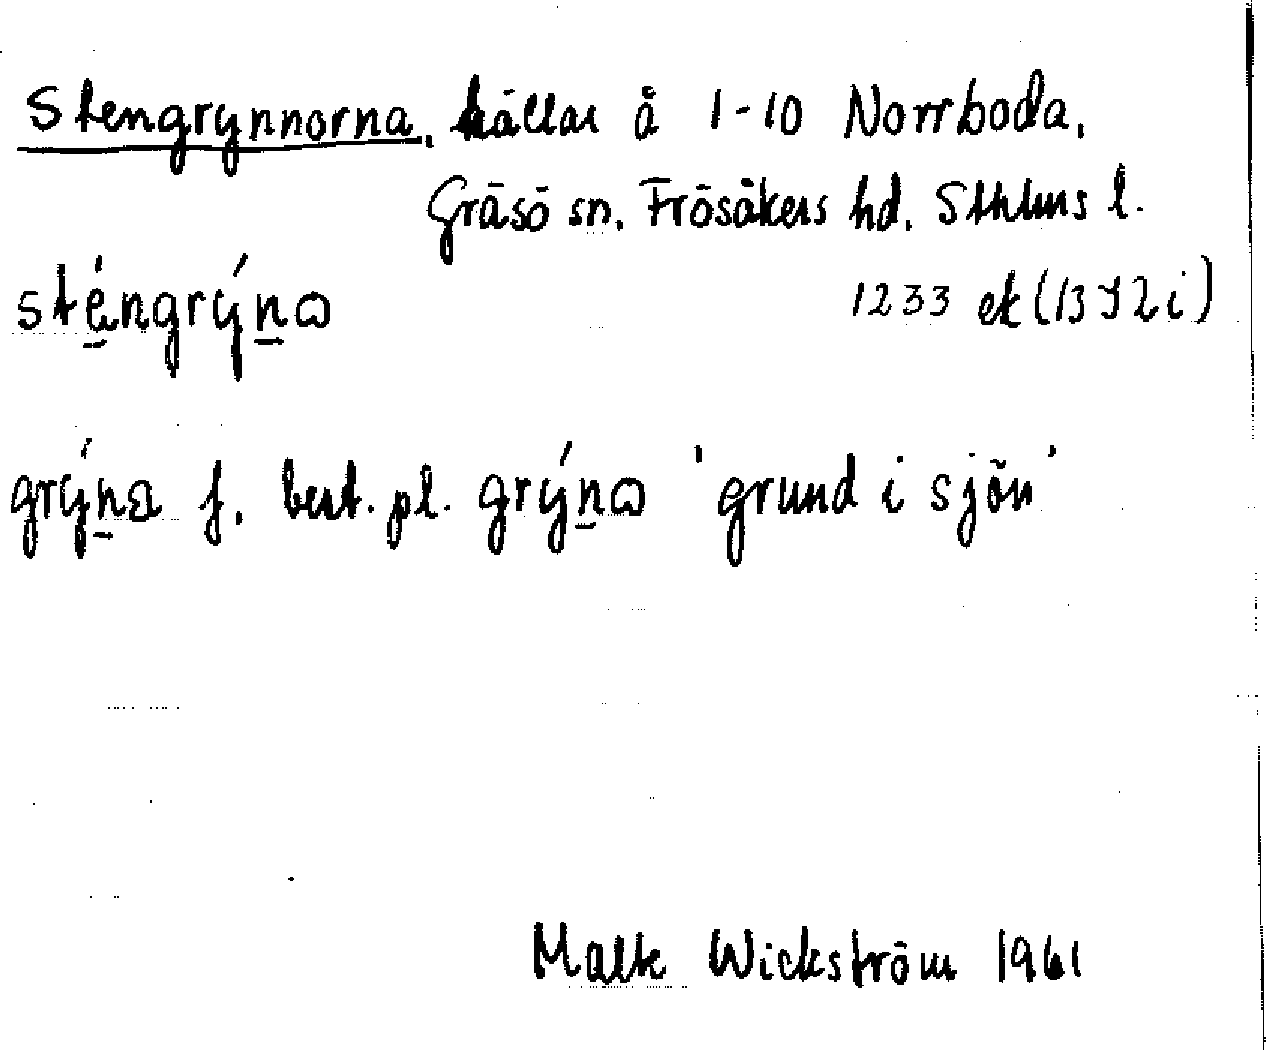 Stengrynnorna, hällar å 1-10 Norrboda,
Gräsö sn. Frösåkers hd. Sthlms l.
sténgrýnɷ 1233 ek (13I2i)
grýna f. best. pl. grýnɷ 'grund i sjön'
Malte Wickström 1961